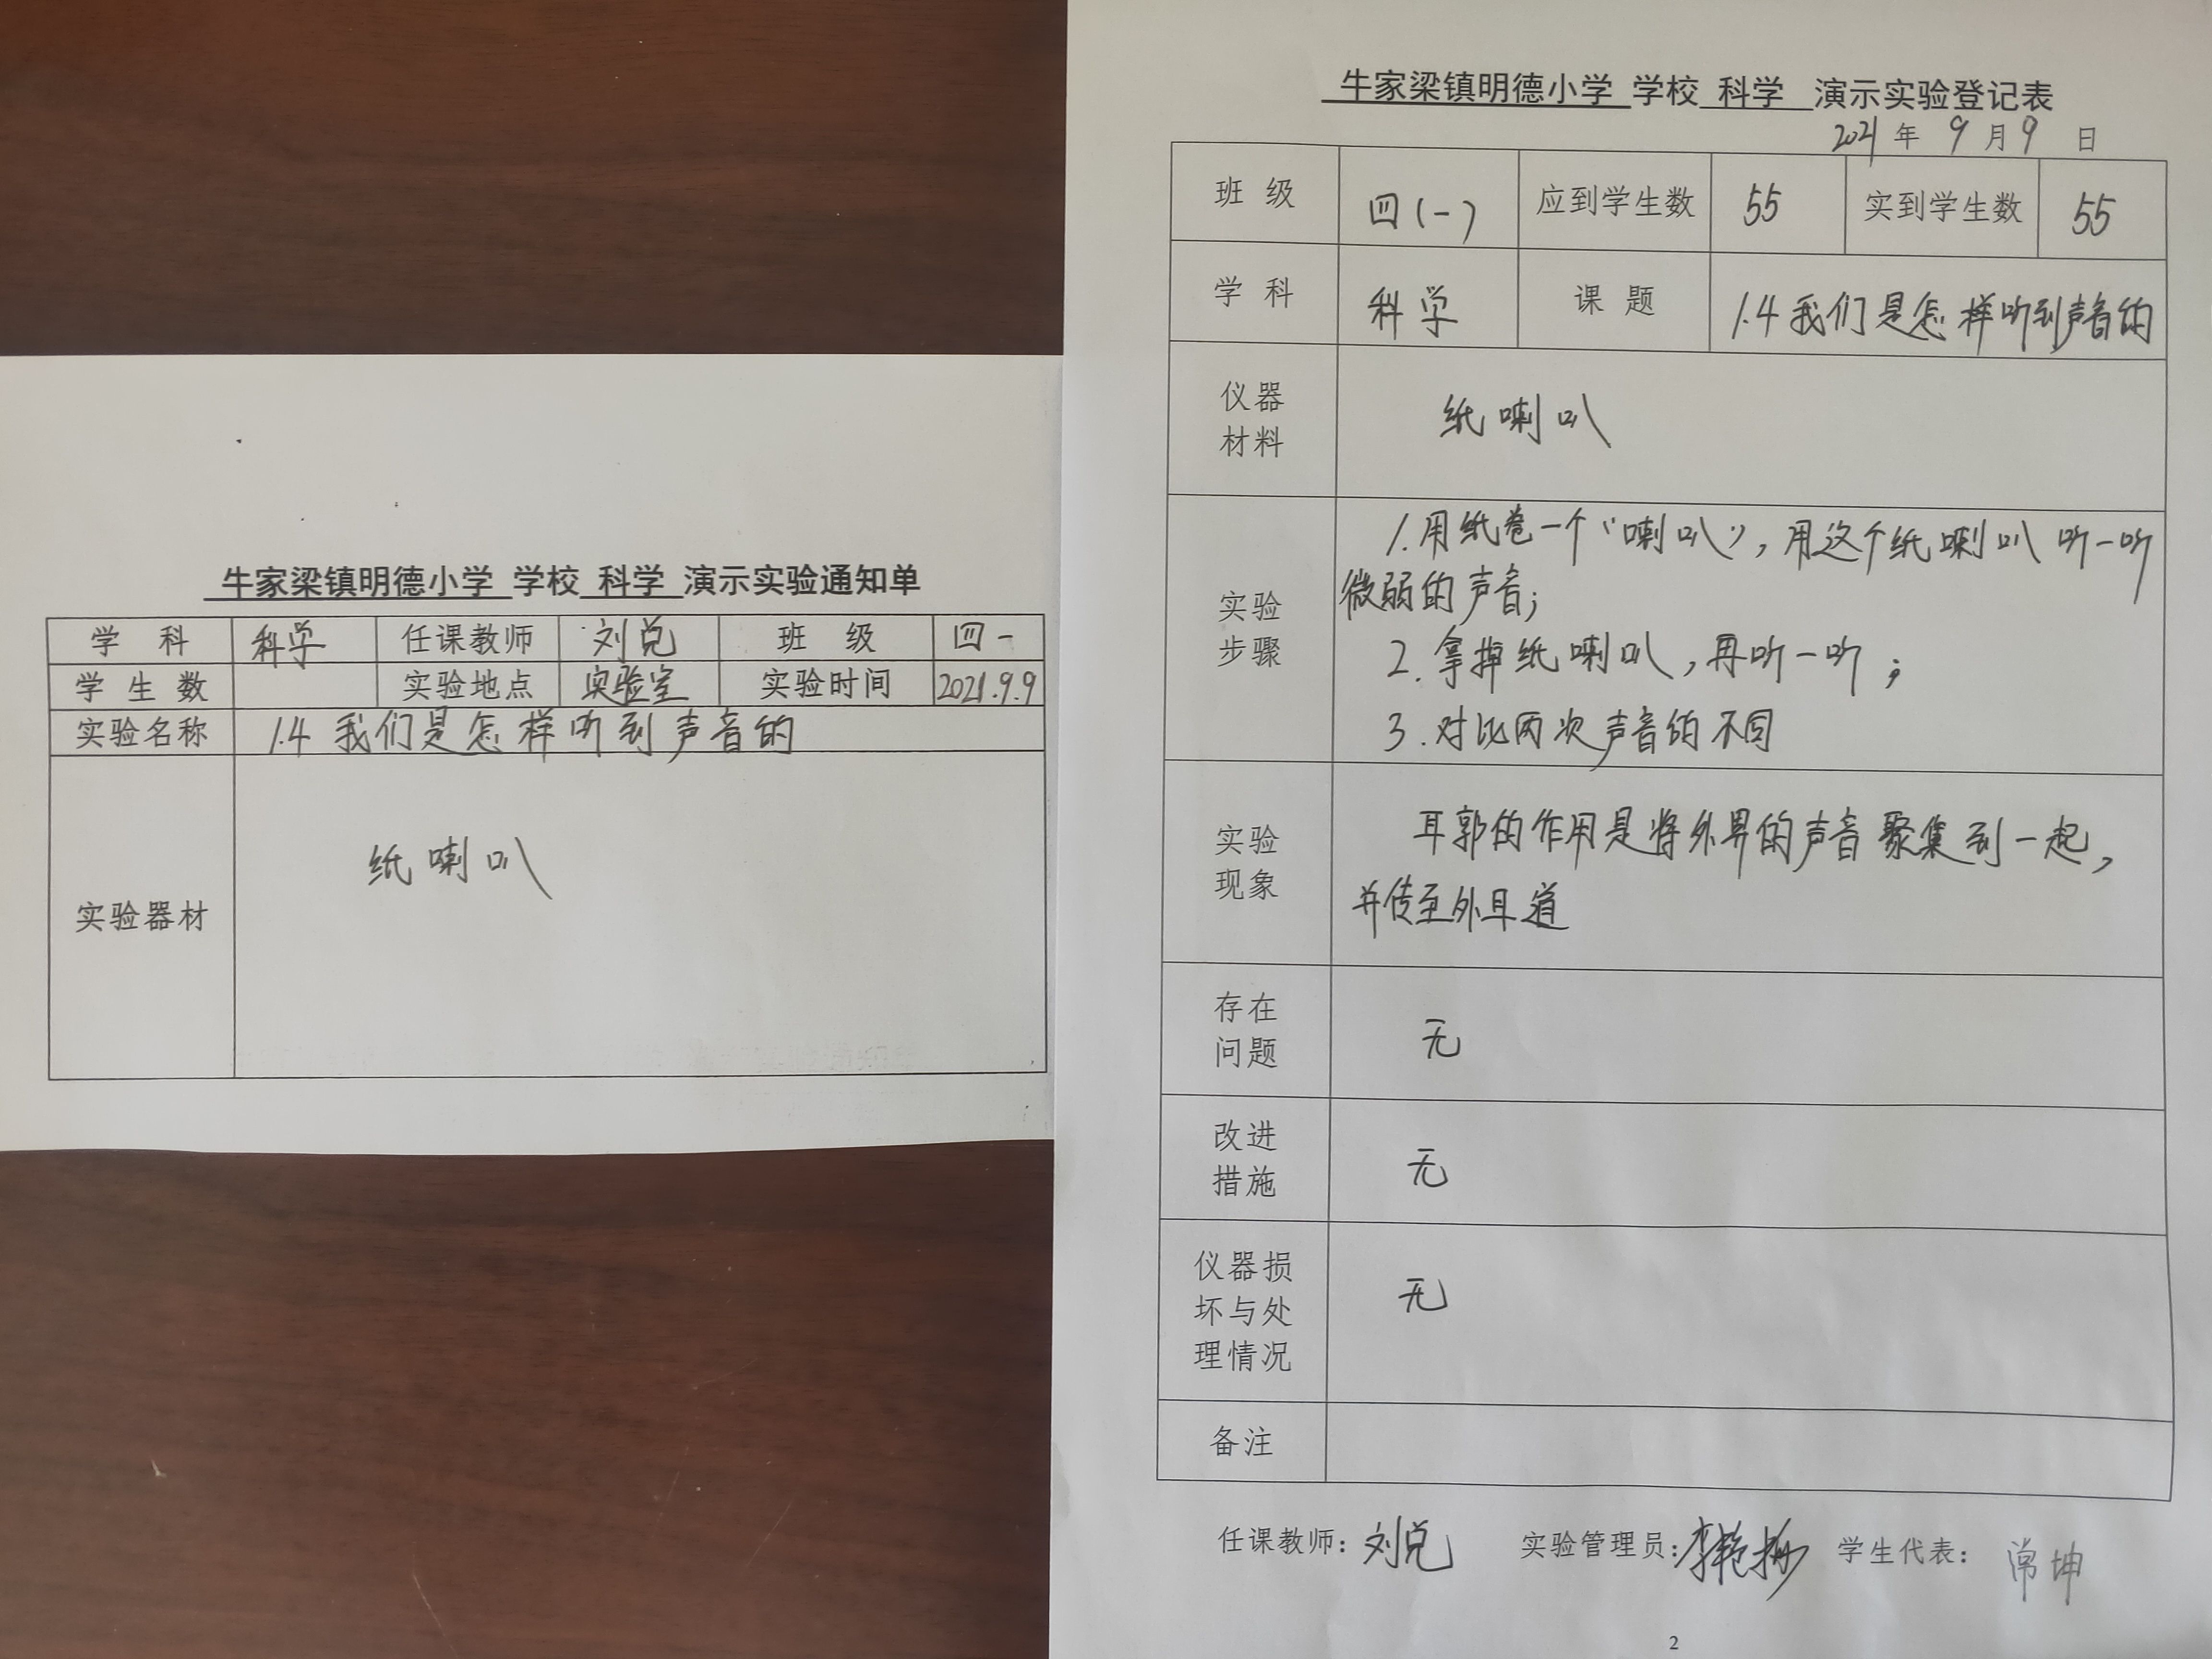 牛家梁镇明德小学 学校 科学 演示实验通知单
学 科 科学 任课教师 刘兑 班 级 四一
学 生 数 实验地点 实验室 实验时间 2021.9.9
实验名称 1.4 我们是怎样听到声音的
实验器材 纸喇叭
牛家梁镇明德小学 学校 科学 演示实验登记表
2021 年 9 月 9 日
班 级 四(一) 应到学生数 55 实到学生数 55
学 科 科学 课 题 1.4 我们是怎样听到声音的
仪器
材料
纸喇叭
实验
步骤
1.用纸卷一个“喇叭”,用这个纸喇叭听一听
微弱的声音;
2.拿掉纸喇叭,再听一听;
3.对比两次声音的不同
实验
现象
耳郭的作用是将外界的声音聚集到一起,
并传至外耳道
存在
问题
无
改进
措施
无
仪器损
坏与处
理情况
无
备注
任课教师: 刘兑 实验管理员: 学生代表: 常坤
2